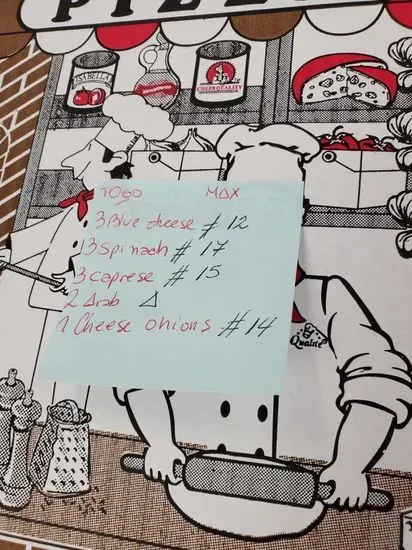 PIZZ
ISABELLA
CHEF'S QUALITY
TOGO MAX
3 Blue cheese # 12
3 Spinach # 17
3 caprese # 15
2 Arab Δ
1 Cheese onions # 14
Qualité